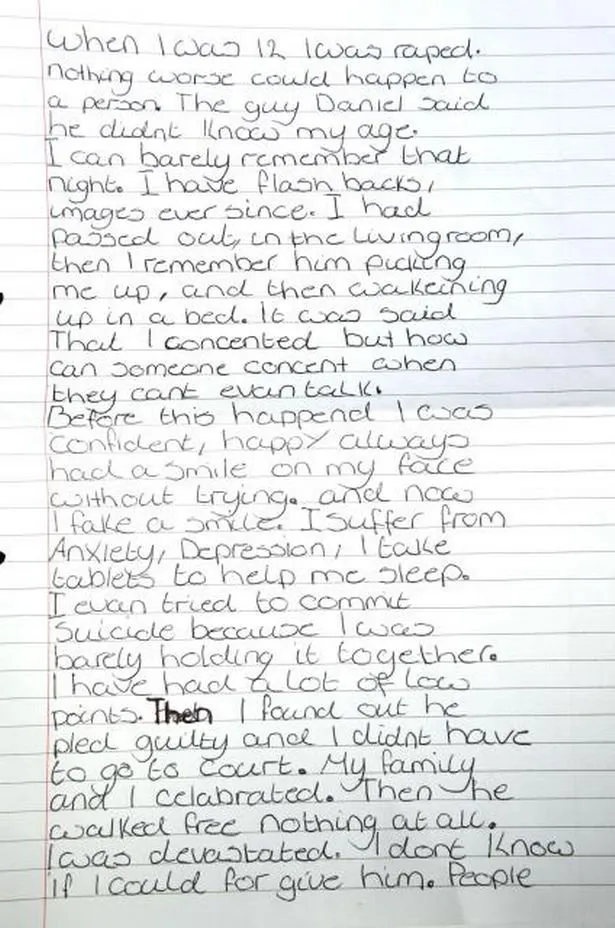 When I was 12 I was raped.
nothing worse could happen to
a person. The guy Daniel said
he didnt know my age.
I can barely remember that
night. I have flash backs,
images ever since. I had
passed out, in the livingroom,
then I remember him picking
me up, and then wakeining
up in a bed. It was said
That I concented but how
can someone concent when
they cant evan talk.
Before this happend I was
confident, happy always
had a smile on my face
without trying. and now
I fake a smile. I suffer from
Anxiety, Depression, I take
tablets to help me sleep.
I evan tried to commit
suicide because I was
barely holding it together.
I have had a lot of low
points. Then I found out he
pled guilty and I didnt have
to go to court. My family
and I celabrated. Then he
walked free nothing at all.
I was devastated. I dont know
if I could for give him. People